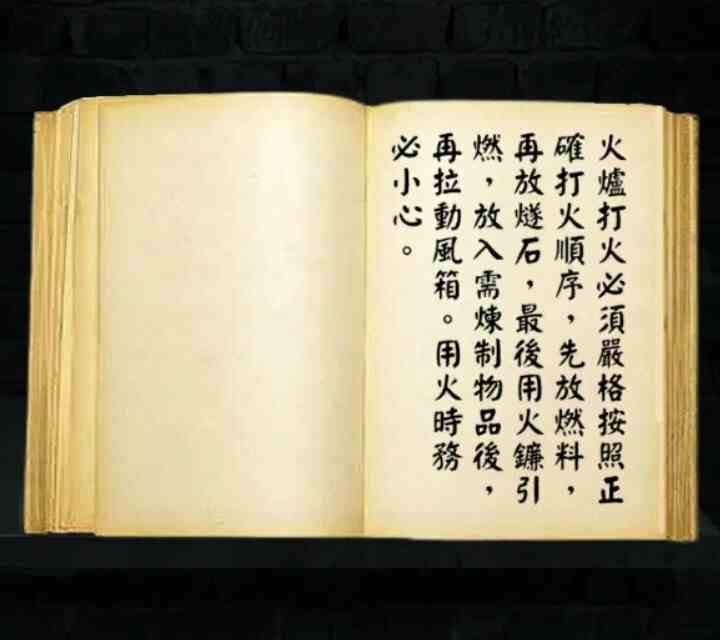 火爐打火必須嚴格按照正
確打火順序，先放燃料，
再放燧石，最後用火鐮引
燃，放入需煉制物品後，
再拉動風箱。用火時務
必小心。